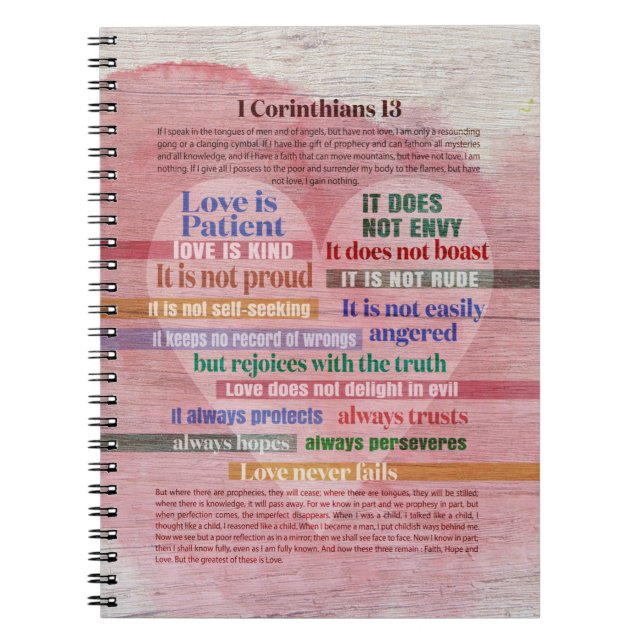 1 Corinthians 13
If I speak in the tongues of men and of angels, but have not love, I am only a resounding
gong or a clanging cymbal. If I have the gift of prophecy and can fathom all mysteries
and all knowledge, and if I have a faith that can move mountains, but have not love, I am
nothing. If I give all I possess to the poor and surrender my body to the flames, but have
not love, I gain nothing.
Love is
Patient
LOVE IS KIND
It is not proud
it is not self-seeking
it keeps no record of wrongs
iT DOES
NOT ENVY
It does not boast
IT IS NOT RUDE
It is not easily
angered
but rejoices with the truth
Love does not delight in evil
it always protects
always trusts
always hopes
always perseveres
Love never fails
But where there are prophecies, they will cease; where there are tongues, they will be stilled;
where there is knowledge, it will pass away. For we know in part and we prophesy in part, but
when perfection comes, the imperfect disappears. When I was a child, I talked like a child, I
thought like a child, I reasoned like a child. When I became a man, I put childish ways behind me.
Now we see but a poor reflection as in a mirror; then we shall see face to face. Now I know in part;
then I shall know fully, even as I am fully known. And now these three remain : Faith, Hope and
Love. But the greatest of these is Love.